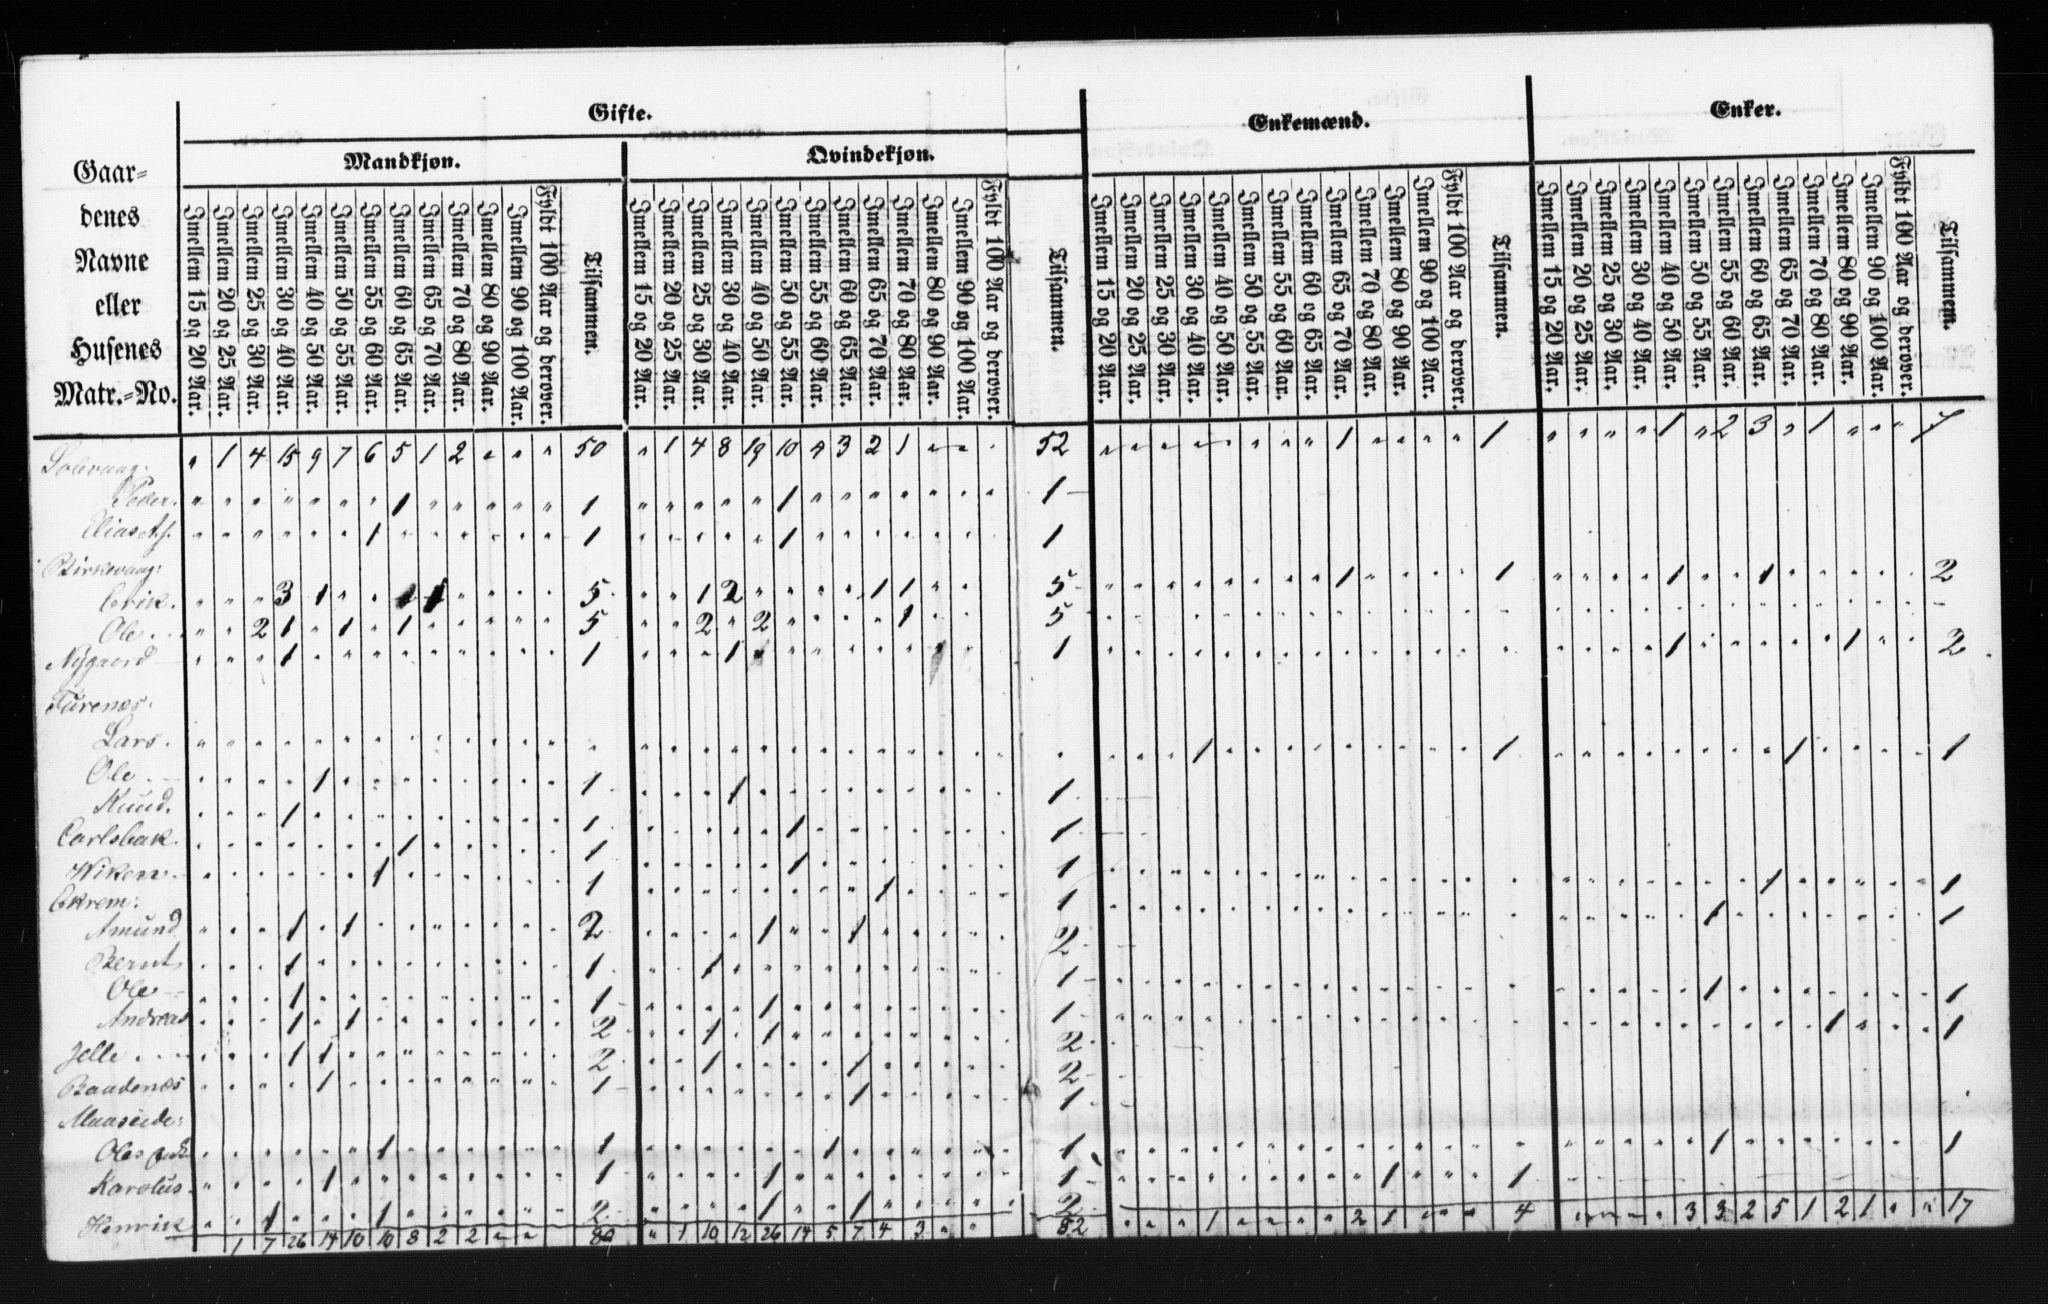 Gaar-
denes
Navne
eller
Husenes
Matr.-No.
Gifte.
Mandkjøn.
Qvindekjøn.
Enkemænd.
Enker.
Imellem 15 og 20 Aar. Imellem 20 og 25 Aar. Imellem 25 og 30 Aar. Imellem 30 og 40 Aar. Imellem 40 og 50 Aar. Imellem 50 og 55 Aar. Imellem 55 og 60 Aar. Imellem 60 og 65 Aar. Imellem 65 og 70 Aar. Imellem 70 og 80 Aar. Imellem 80 og 90 Aar. Imellem 90 og 100 Aar. Fyldt 100 Aar og derover. Tilsammen.
Imellem 15 og 20 Aar. Imellem 20 og 25 Aar. Imellem 25 og 30 Aar. Imellem 30 og 40 Aar. Imellem 40 og 50 Aar. Imellem 50 og 55 Aar. Imellem 55 og 60 Aar. Imellem 60 og 65 Aar. Imellem 65 og 70 Aar. Imellem 70 og 80 Aar. Imellem 80 og 90 Aar. Imellem 90 og 100 Aar. Fyldt 100 Aar og derover. Tilsammen.
Imellem 15 og 20 Aar. Imellem 20 og 25 Aar. Imellem 25 og 30 Aar. Imellem 30 og 40 Aar. Imellem 40 og 50 Aar. Imellem 50 og 55 Aar. Imellem 55 og 60 Aar. Imellem 60 og 65 Aar. Imellem 65 og 70 Aar. Imellem 70 og 80 Aar. Imellem 80 og 90 Aar. Imellem 90 og 100 Aar. Fyldt 100 Aar og derover. Tilsammen.
Imellem 15 og 20 Aar. Imellem 20 og 25 Aar. Imellem 25 og 30 Aar. Imellem 30 og 40 Aar. Imellem 40 og 50 Aar. Imellem 50 og 55 Aar. Imellem 55 og 60 Aar. Imellem 60 og 65 Aar. Imellem 65 og 70 Aar. Imellem 70 og 80 Aar. Imellem 80 og 90 Aar. Imellem 90 og 100 Aar. Fyldt 100 Aar og derover. Tilsammen.
1 4 15 9 7 6 5 1 2 50 1 4 8 19 10 4 3 2 1 52 1 1 1 2 3 1 7
Peder. 1 1 1 1
Elias 1 1 1 1
Birkevaag:
Erick. 3 1 1 1 5 1 2 1 1 5 1 1 1 1 2
Ole 2 1 1 1 5 2 2 1 5
Nygaard 1 1 1 1 1 1 2
Furenæs.
Lars. 1 1 1 1
Ole 1 1 1 1
Knud. 1 1 1 1
Carlsbak. 1 1 1 1
Wiken 1 1 1 1 1 1
Ekrem: 1 1
Amund 1 1 2 1 1 2
Bernt 1 1 1 1 1 1
Ole 1 1 1 1 1 1
Andreas 1 1 2 1 1 2
Jelle 1 1 2 1 1 2
Baadenæs 1 1 1 1
Maaseide:
Ole 1 1 1 1 1 1
Karolus 1 1 1 1 1 1
Henrick 1 1 2 1 1 2
1 7 26 14 10 10 8 2 2 80 1 10 12 26 14 5 7 4 3 82 1 2 1 4 3 3 2 5 1 2 1 17